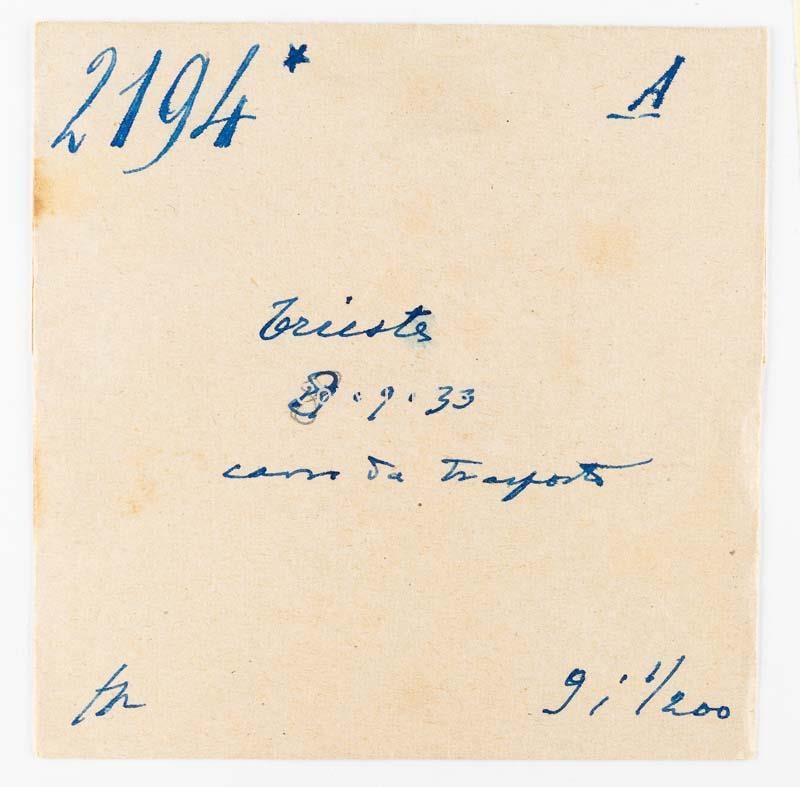 2194*
A
Trieste
8.9.33
carro da trasporto
th
9 i 1/200